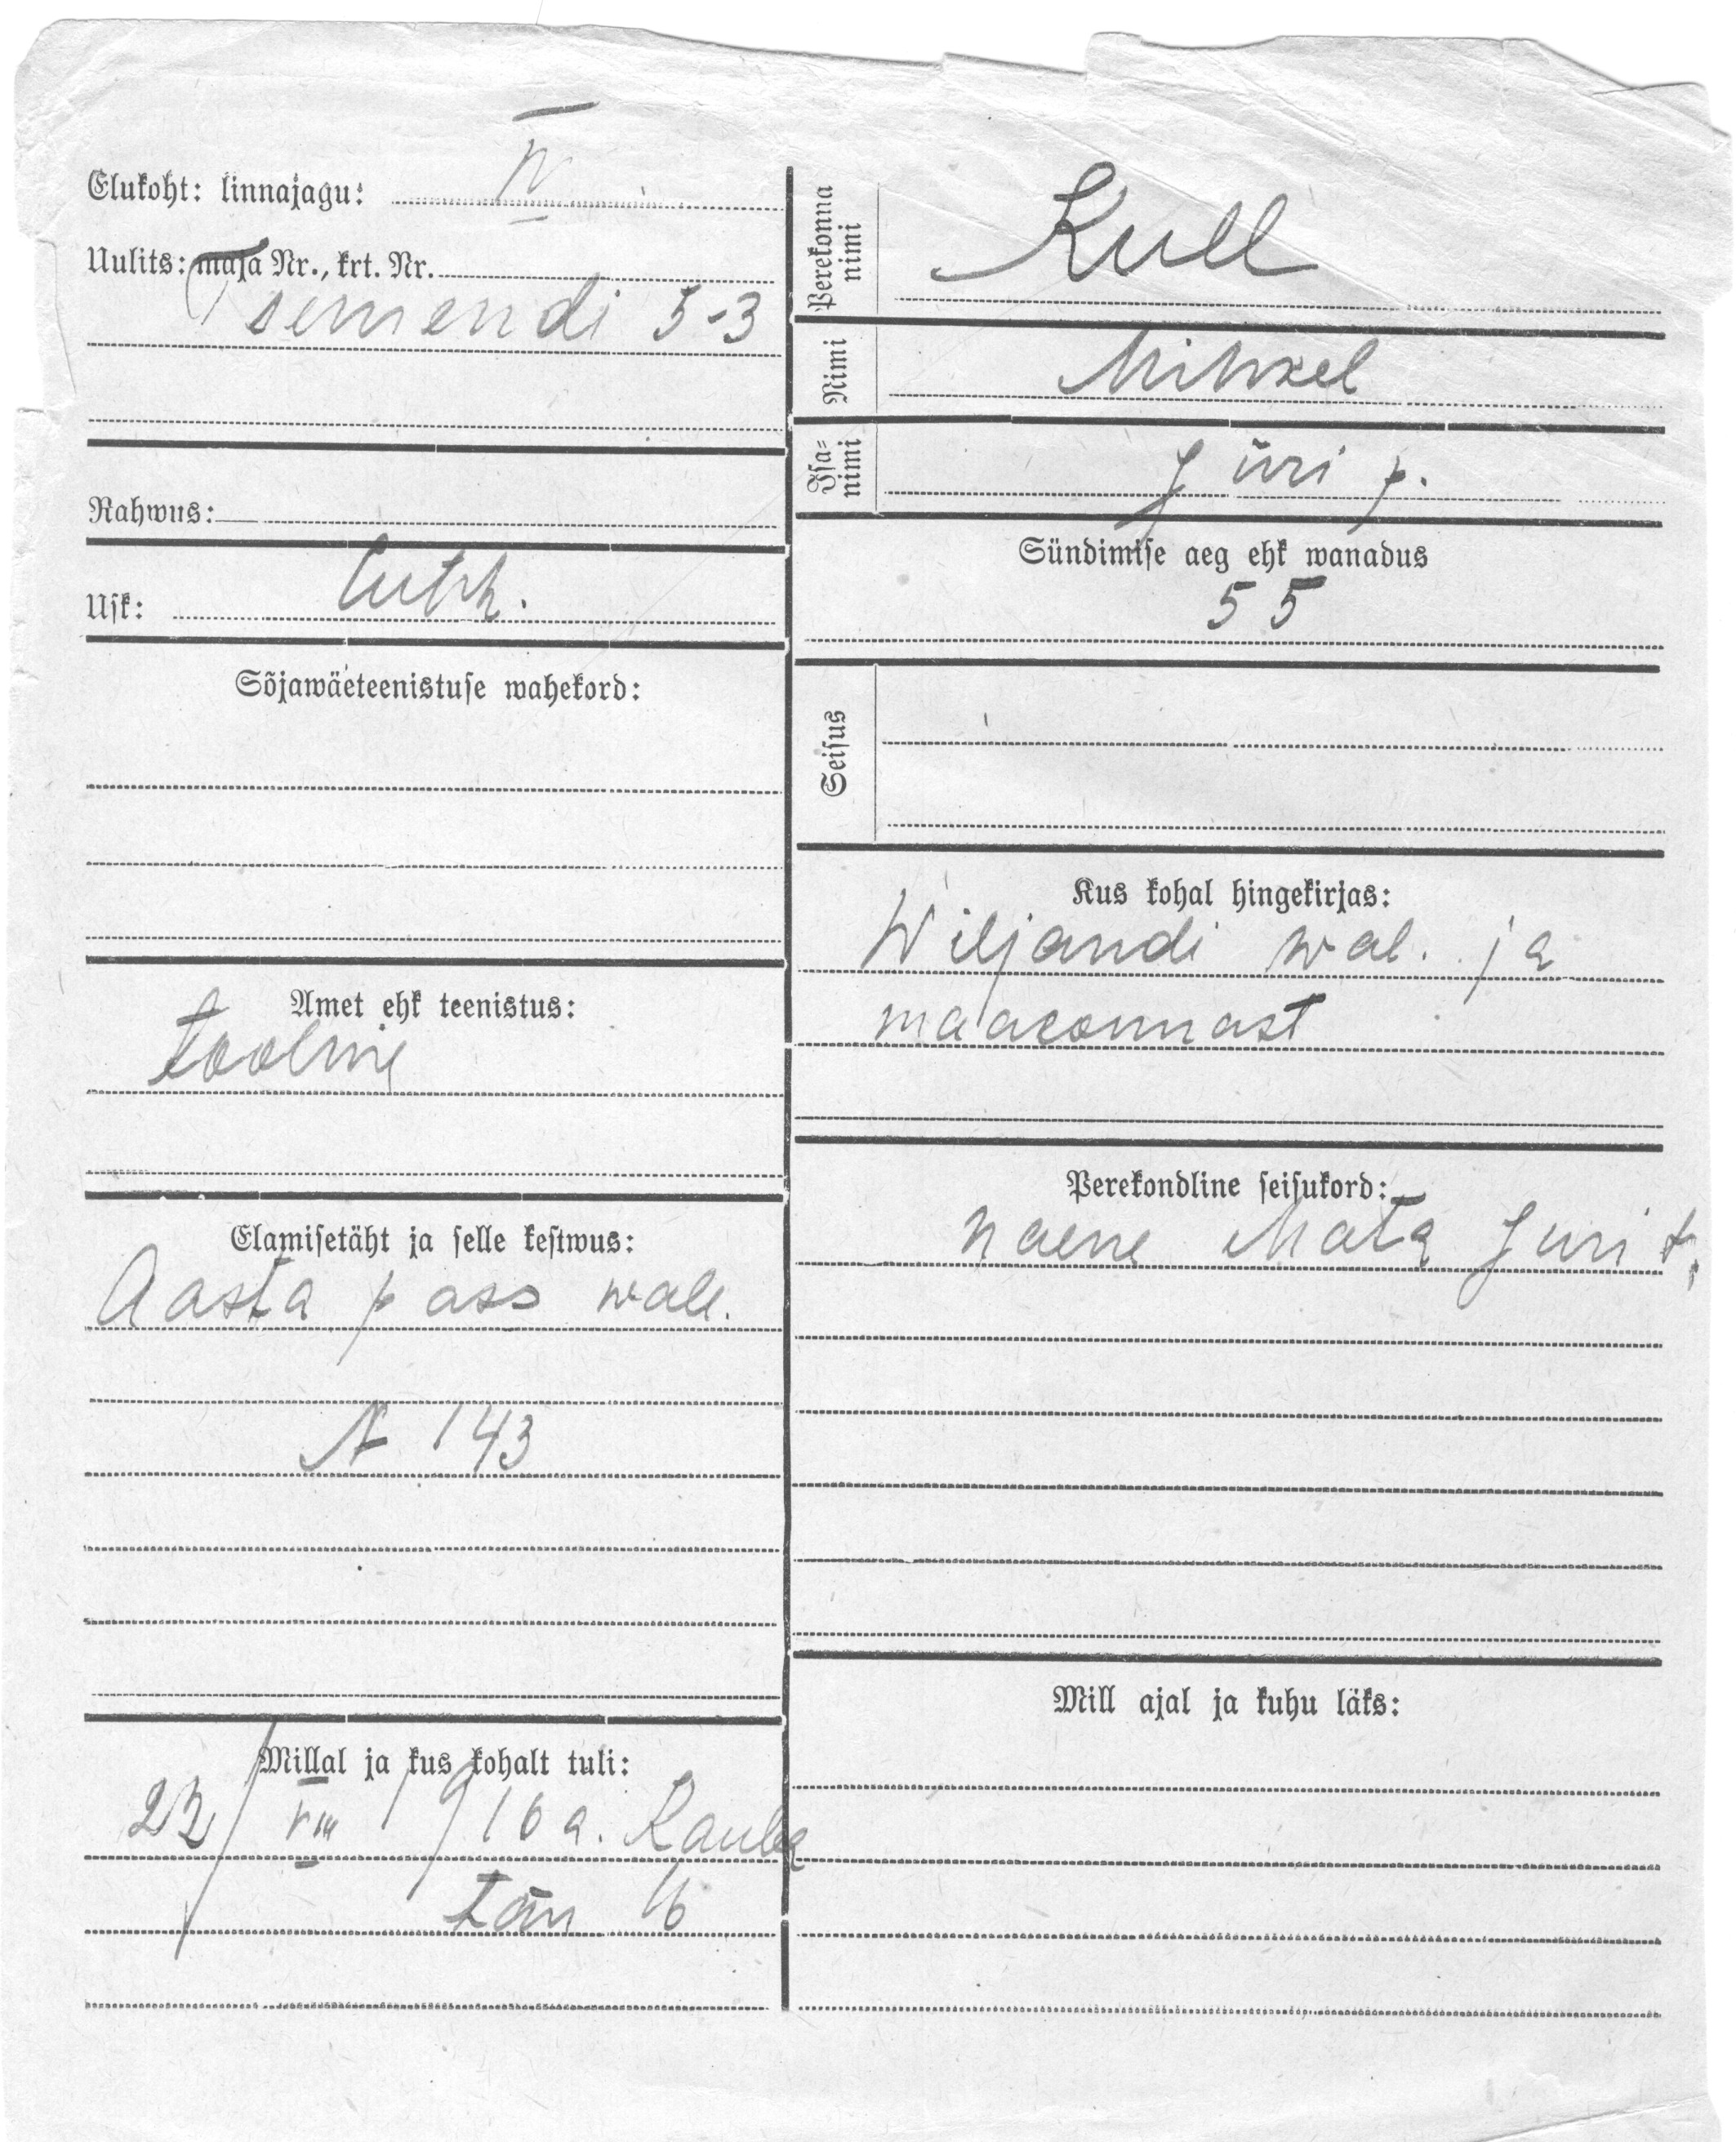 Elukoht: linnajagu: IV
Uulits: maja Nr., krt. Nr.
Tsemendi 5-3
Rahwus:
Usk: Luth.
Sõjawäeteenistuse wahekord:
Amet ehk teenistus:
Tööline
Elamisetäht ja selle kestwus:
Aasta pass wall.
N 143
Millal ja kus kohalt tuli:
22/VIII 1916 a. Kauba
tän 16
Perekonna nimi
Kull
Nimi
Mihkel
Isa-nimi
Jüri p.
Sündimise aeg ehk wanadus
55
Seisus
Kus kohal hingekirjas:
Wiljandi wal. ja
maaconnast
Perekondline seisukord:
naene Mata Juri t.
Mill ajal ja kuhu läks: